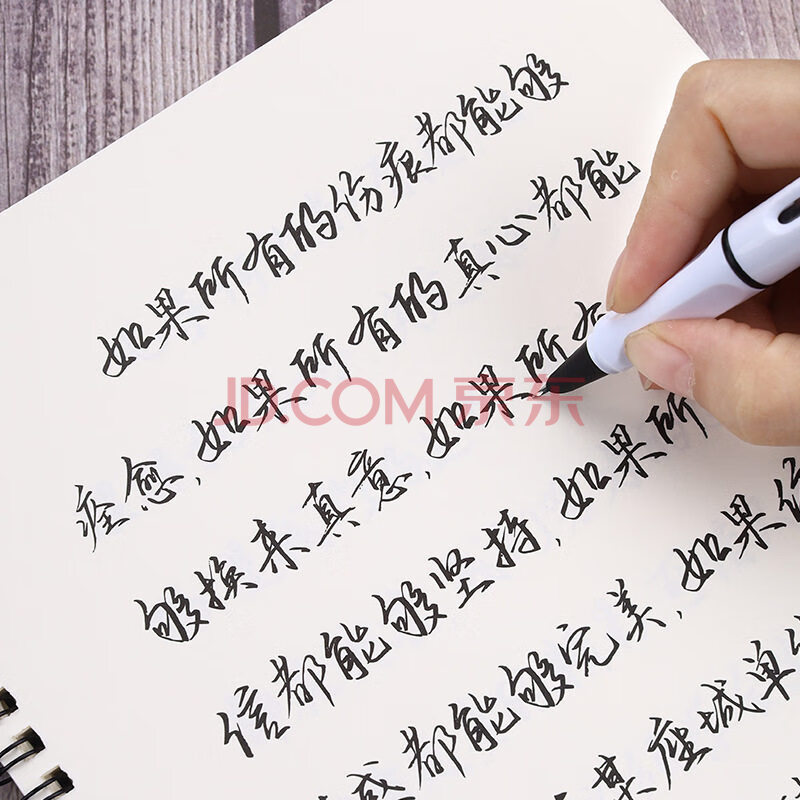 如果所有的伤痕都能够
痊愈,如果所有的真心都能
够换来真意,如果所有
信都能够坚持,如果所
感都能够完美,如果
某座城单
JD.COM 京东